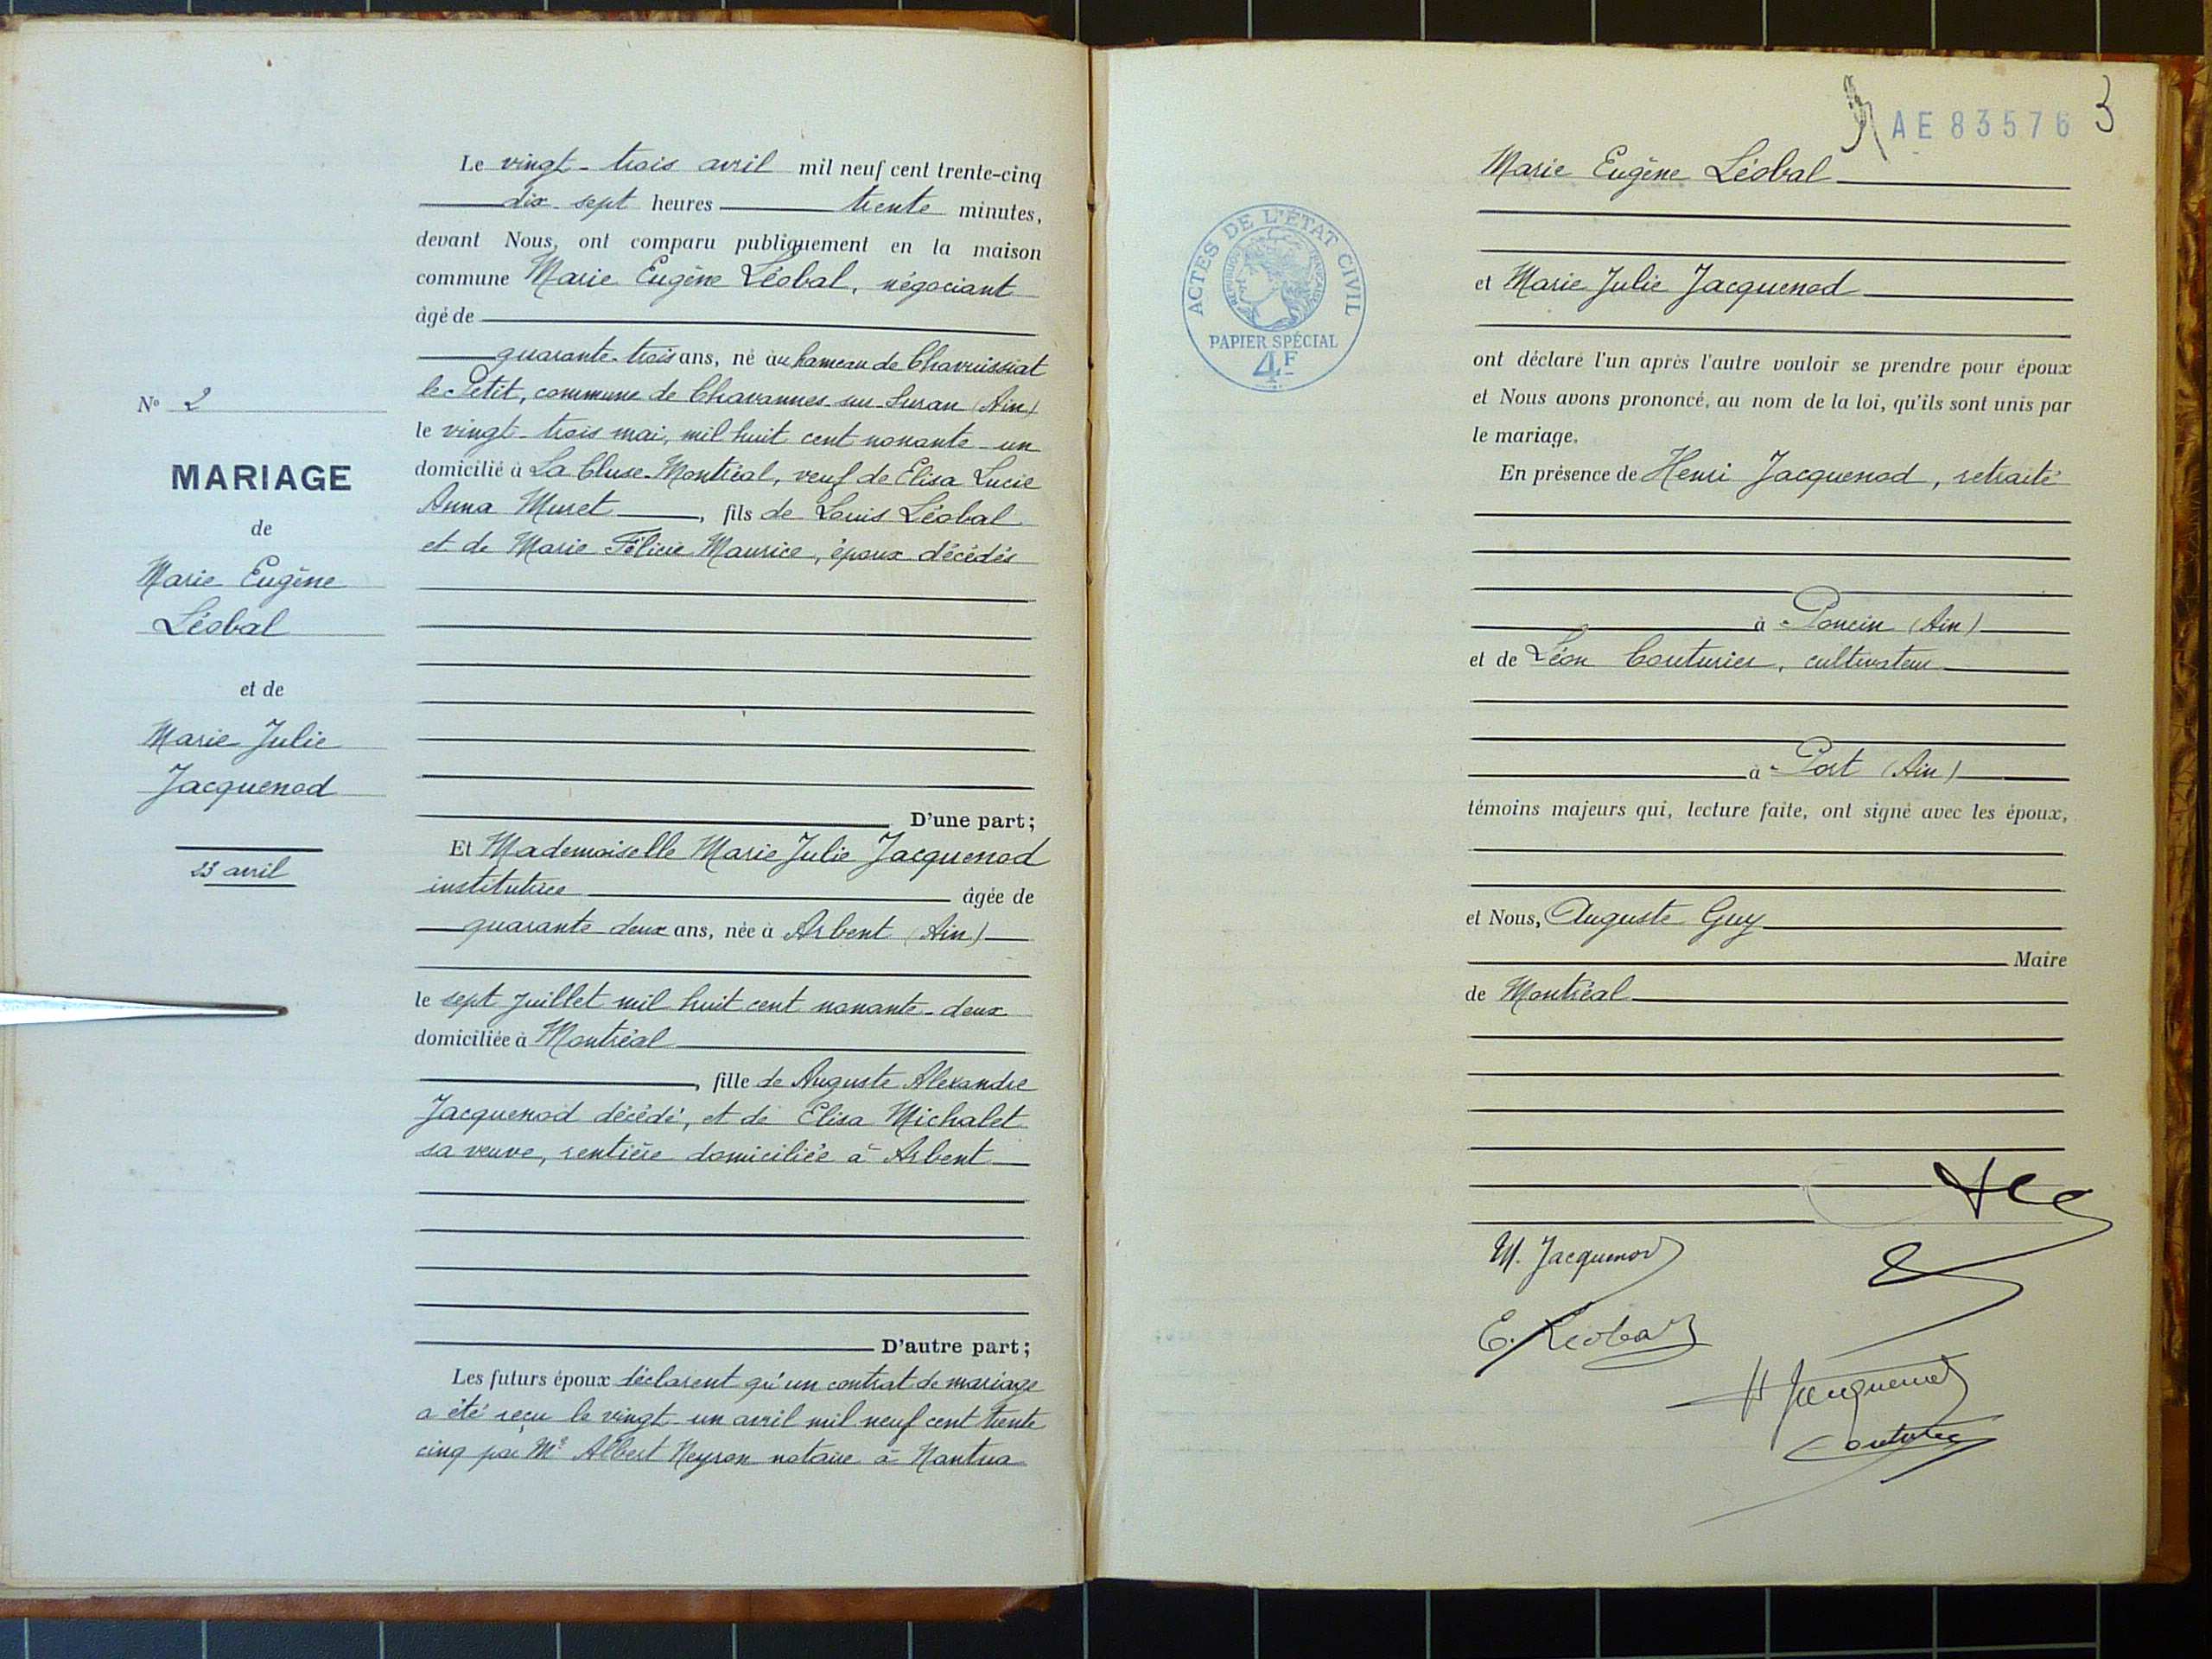 Le vingt-trois avril mil neuf cent trente-cinq
dix sept heures trente minutes,
devant Nous, ont comparu publiquement en la maison
commune Marie Eugène Léobal, négociant
âgé de
quarante-trois ans, né au hameau de Chavuissiat
le Petit, commune de Chavannes-sur-Suran (Ain)
le vingt-trois mai, mil huit cent nonante-un
domicilié à La Cluse-Montréal, veuf de Elisa Lucie
Anna Muret, fils de Louis Léobal
et de Marie Félicie Maurice, époux décédés
D'une part;
Et Mademoiselle Marie Julie Jacquenod
institutrice âgée de
quarante deux ans, née à Arbent (Ain)
le sept juillet mil huit cent nonante-deux
domiciliée à Montréal
, fille de Auguste Alexandre
Jacquenod décédé, et de Elisa Michalet
sa veuve, rentière domiciliée à Arbent
D'autre part;
Les futurs époux déclarent qu'un contrat de mariage
a été reçu le vingt-un avril mil neuf cent trente
cinq par Me Albert Neyron notaire à Nantua
No 2
MARIAGE
de
Marie Eugène
Léobal
et de
Marie Julie
Jacquenod
23 avril
AE 83576 3
ACTES DE L'ÉTAT CIVIL
RÉPUBLIQUE FRANÇAISE
PAPIER SPÉCIAL
4F
Marie Eugène Léobal
et Marie Julie Jacquenod
ont déclaré l'un après l'autre vouloir se prendre pour époux
et Nous avons prononcé, au nom de la loi, qu'ils sont unis par
le mariage.
En présence de Henri Jacquenod, retraité
à Poncin (Ain)
et de Léon Couturier, cultivateur
à Port (Ain)
témoins majeurs qui, lecture faite, ont signé avec les époux,
et Nous, Auguste Guy
Maire
de Montréal
M. Jacquenod
E. Léobal
H Jacquenod
Couturier